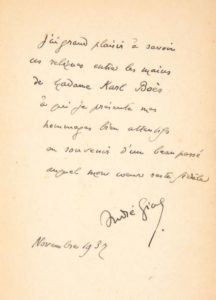 J'ai grand plaisir à savoir
ces reliques entre les mains
de Madame Karl Boès
à qui je présente mes
hommages bien attentifs
en souvenir d'un beau passé
auquel mon cœur reste fidèle
André Gide
Novembre 1937